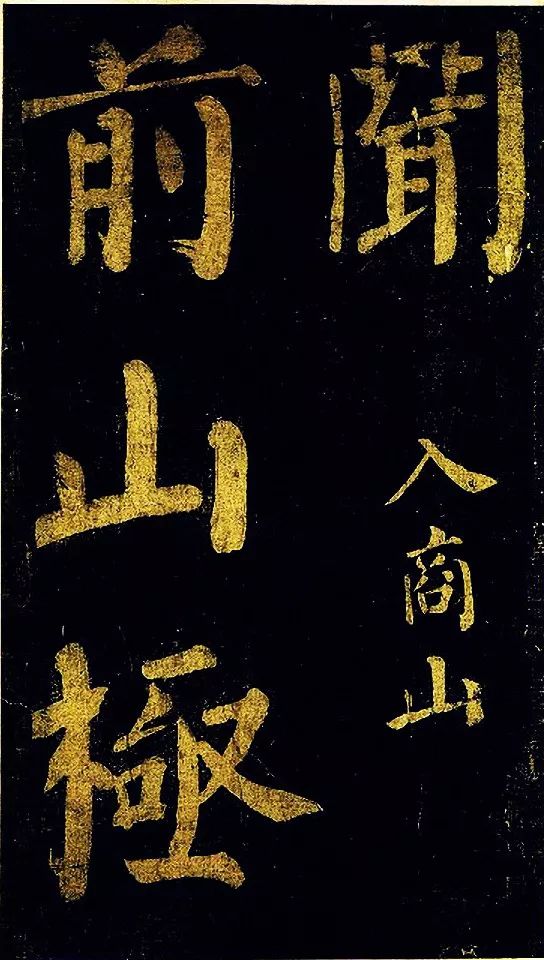 聞
入商山
前山極